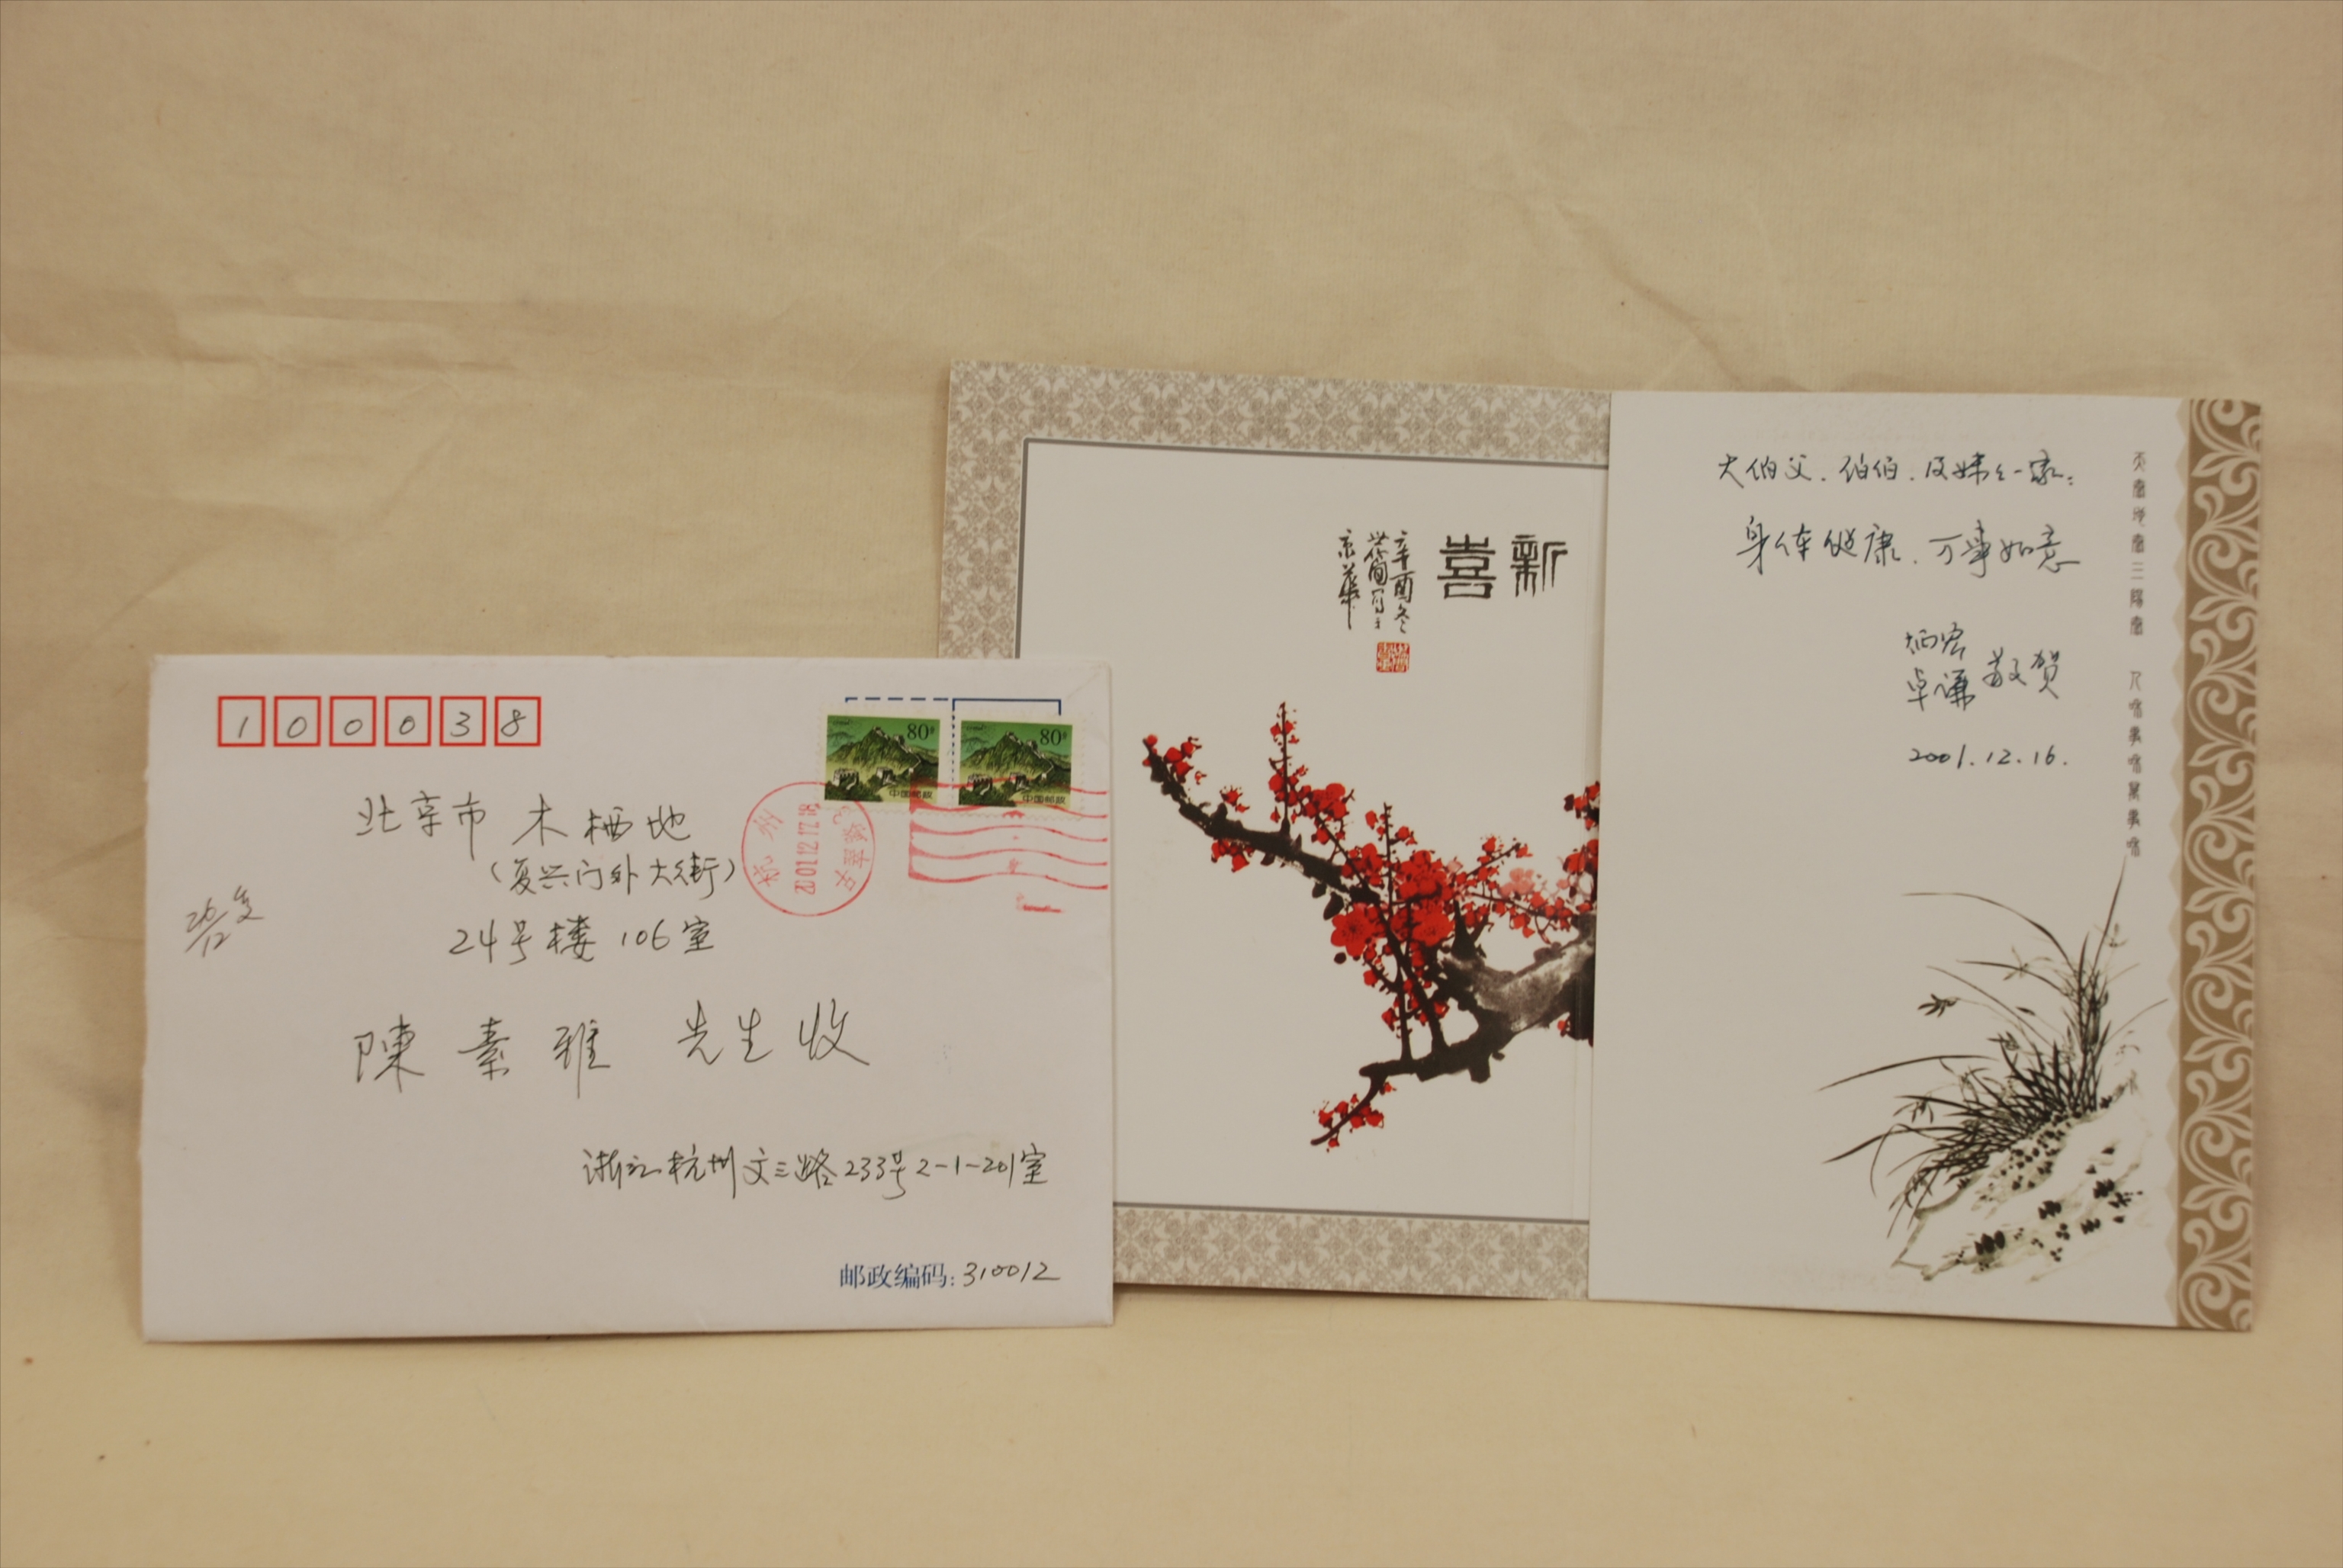 100038
80分
80分
中国邮政
中国邮政
杭州
2001.12.17.18
北京市 木樨地
(复兴门外大街)
24号楼 106室
26/12 复
陳素雅 先生收
浙江杭州文三路233号2-1-201室
邮政编码:310012
新
喜
辛酉冬
京华
大伯父.伯伯.及妹々一家:
身体健康.万事如意
炳宏
卓谦 敬贺
2001.12.16.